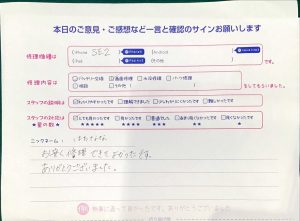 本日のご意見・ご感想など一言と確認のサインお願いします
修理機種は
iPhone SE2
Android
iPad
その他
です。
修理内容は
バッテリー交換 画面修理 水没修理 パーツ修理
相談 その他
をしてもらいました。
スタッフの説明は
わかりやすかったです 理解できました 少しわかりにくかったです 難しかったです
スタッフの対応は
★星の数★
とても良かったです 良かったです 普通でした あまり良くなかったです 良くなかったです
★★★★★ ★★★★ ★★★ ★★ ★
ニックネーム：
お安く修理できてよかったです。
ありがとうございました。